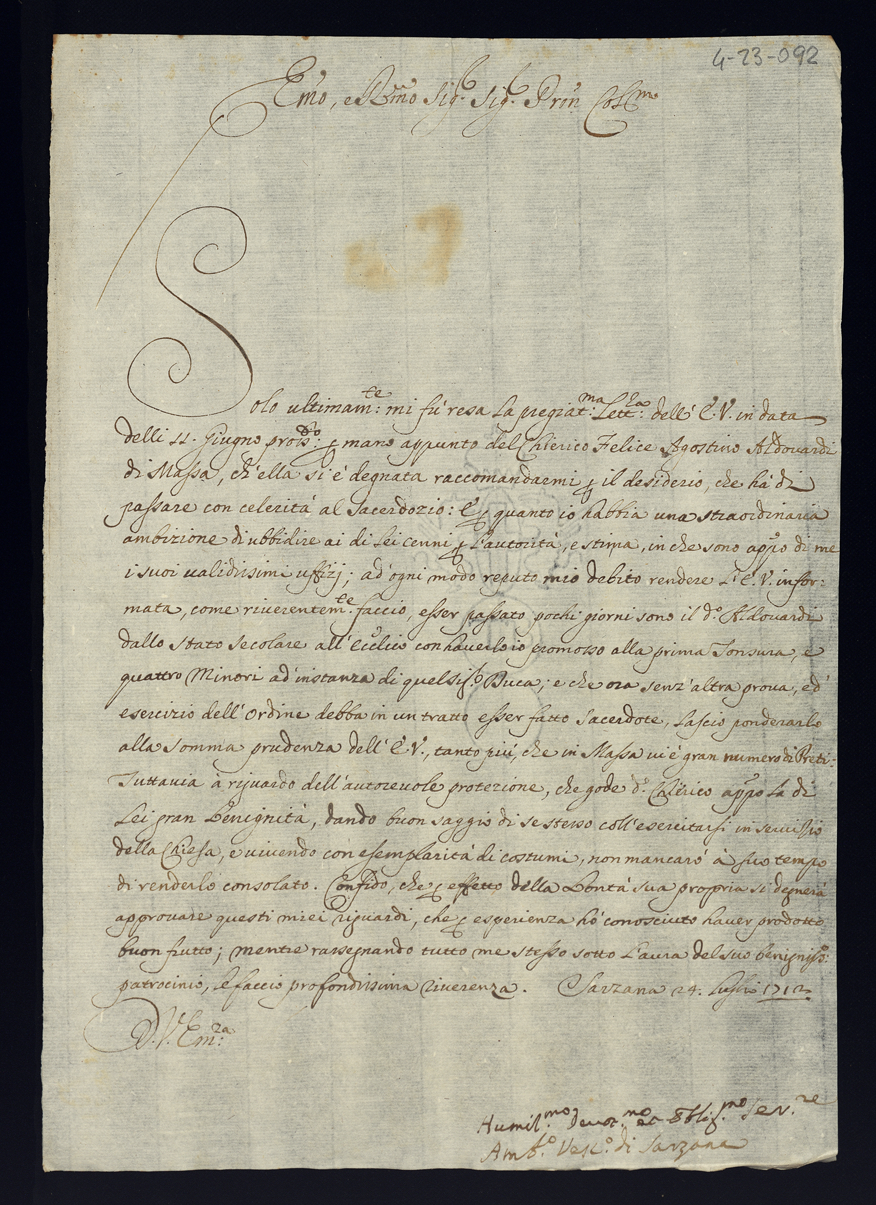 4-23-092
Em̃o, e R̃mo Sig.r Sig.r Prõn Col.mo
Solo ultimam.te: mi fù resa la pregiat.ma Lett.ra: dell'E.V. in data
delli 11. Giugno pross.o: p mano appunto del Chierico Felice Agostino Aldovardi
di Massa, ch'ella si è degnata raccomandarmi p il desiderio, che hà di
passare con celerità al Sacerdozio: E p quanto io habbia una straordinaria
ambizione di ubbidire ai di Lei cenni p l'autorità, e stima, in che sono app.o di me
i suoi validissimi uffizj; ad'ogni modo reputo mio debito rendere L'E.V. infor:
mata, come riverentem.te: faccio, esser passato pochi giorni sono il d.o Aldovardi
dallo stato secolare all'Ecclico con haverlo io promosso alla prima Tonsura, e
quattro Minori ad'instanza di quel Sig.r Duca; e che ora senz'altra prova, ed'
esercizio dell'Ordine debba in un tratto esser fatto Sacerdote, lascio ponderarlo
alla somma prudenza dell'E.V., tanto più, che in Massa vi è gran numero di Preti.
Tuttavia à riguardo dell'autorevole protezione, che gode d.o Chierico app.o La di
Lei gran Benignità, dando buon saggio di se stesso coll'esercitarsi in servizio
della Chiesa, e vivendo con esemplarità di costumi, non mancarò à suo tempo
di renderlo consolato. Confido, che p effetto della Bontà sua propria si degnerà
approvare questi miei riguardi, che p esperienza hò conosciuto haver prodotto
buon frutto; mentre rassegnando tutto me stesso sotto l'aura del suo benigniss.o:
patrocinio, le faccio profondissima riverenza. Sarzana 24. Luglio 1712
D. V. Em.za:
Humil.mo Devot.mo et Oblig.mo Ser.re
Amb.o Vesc.o di Sarzana